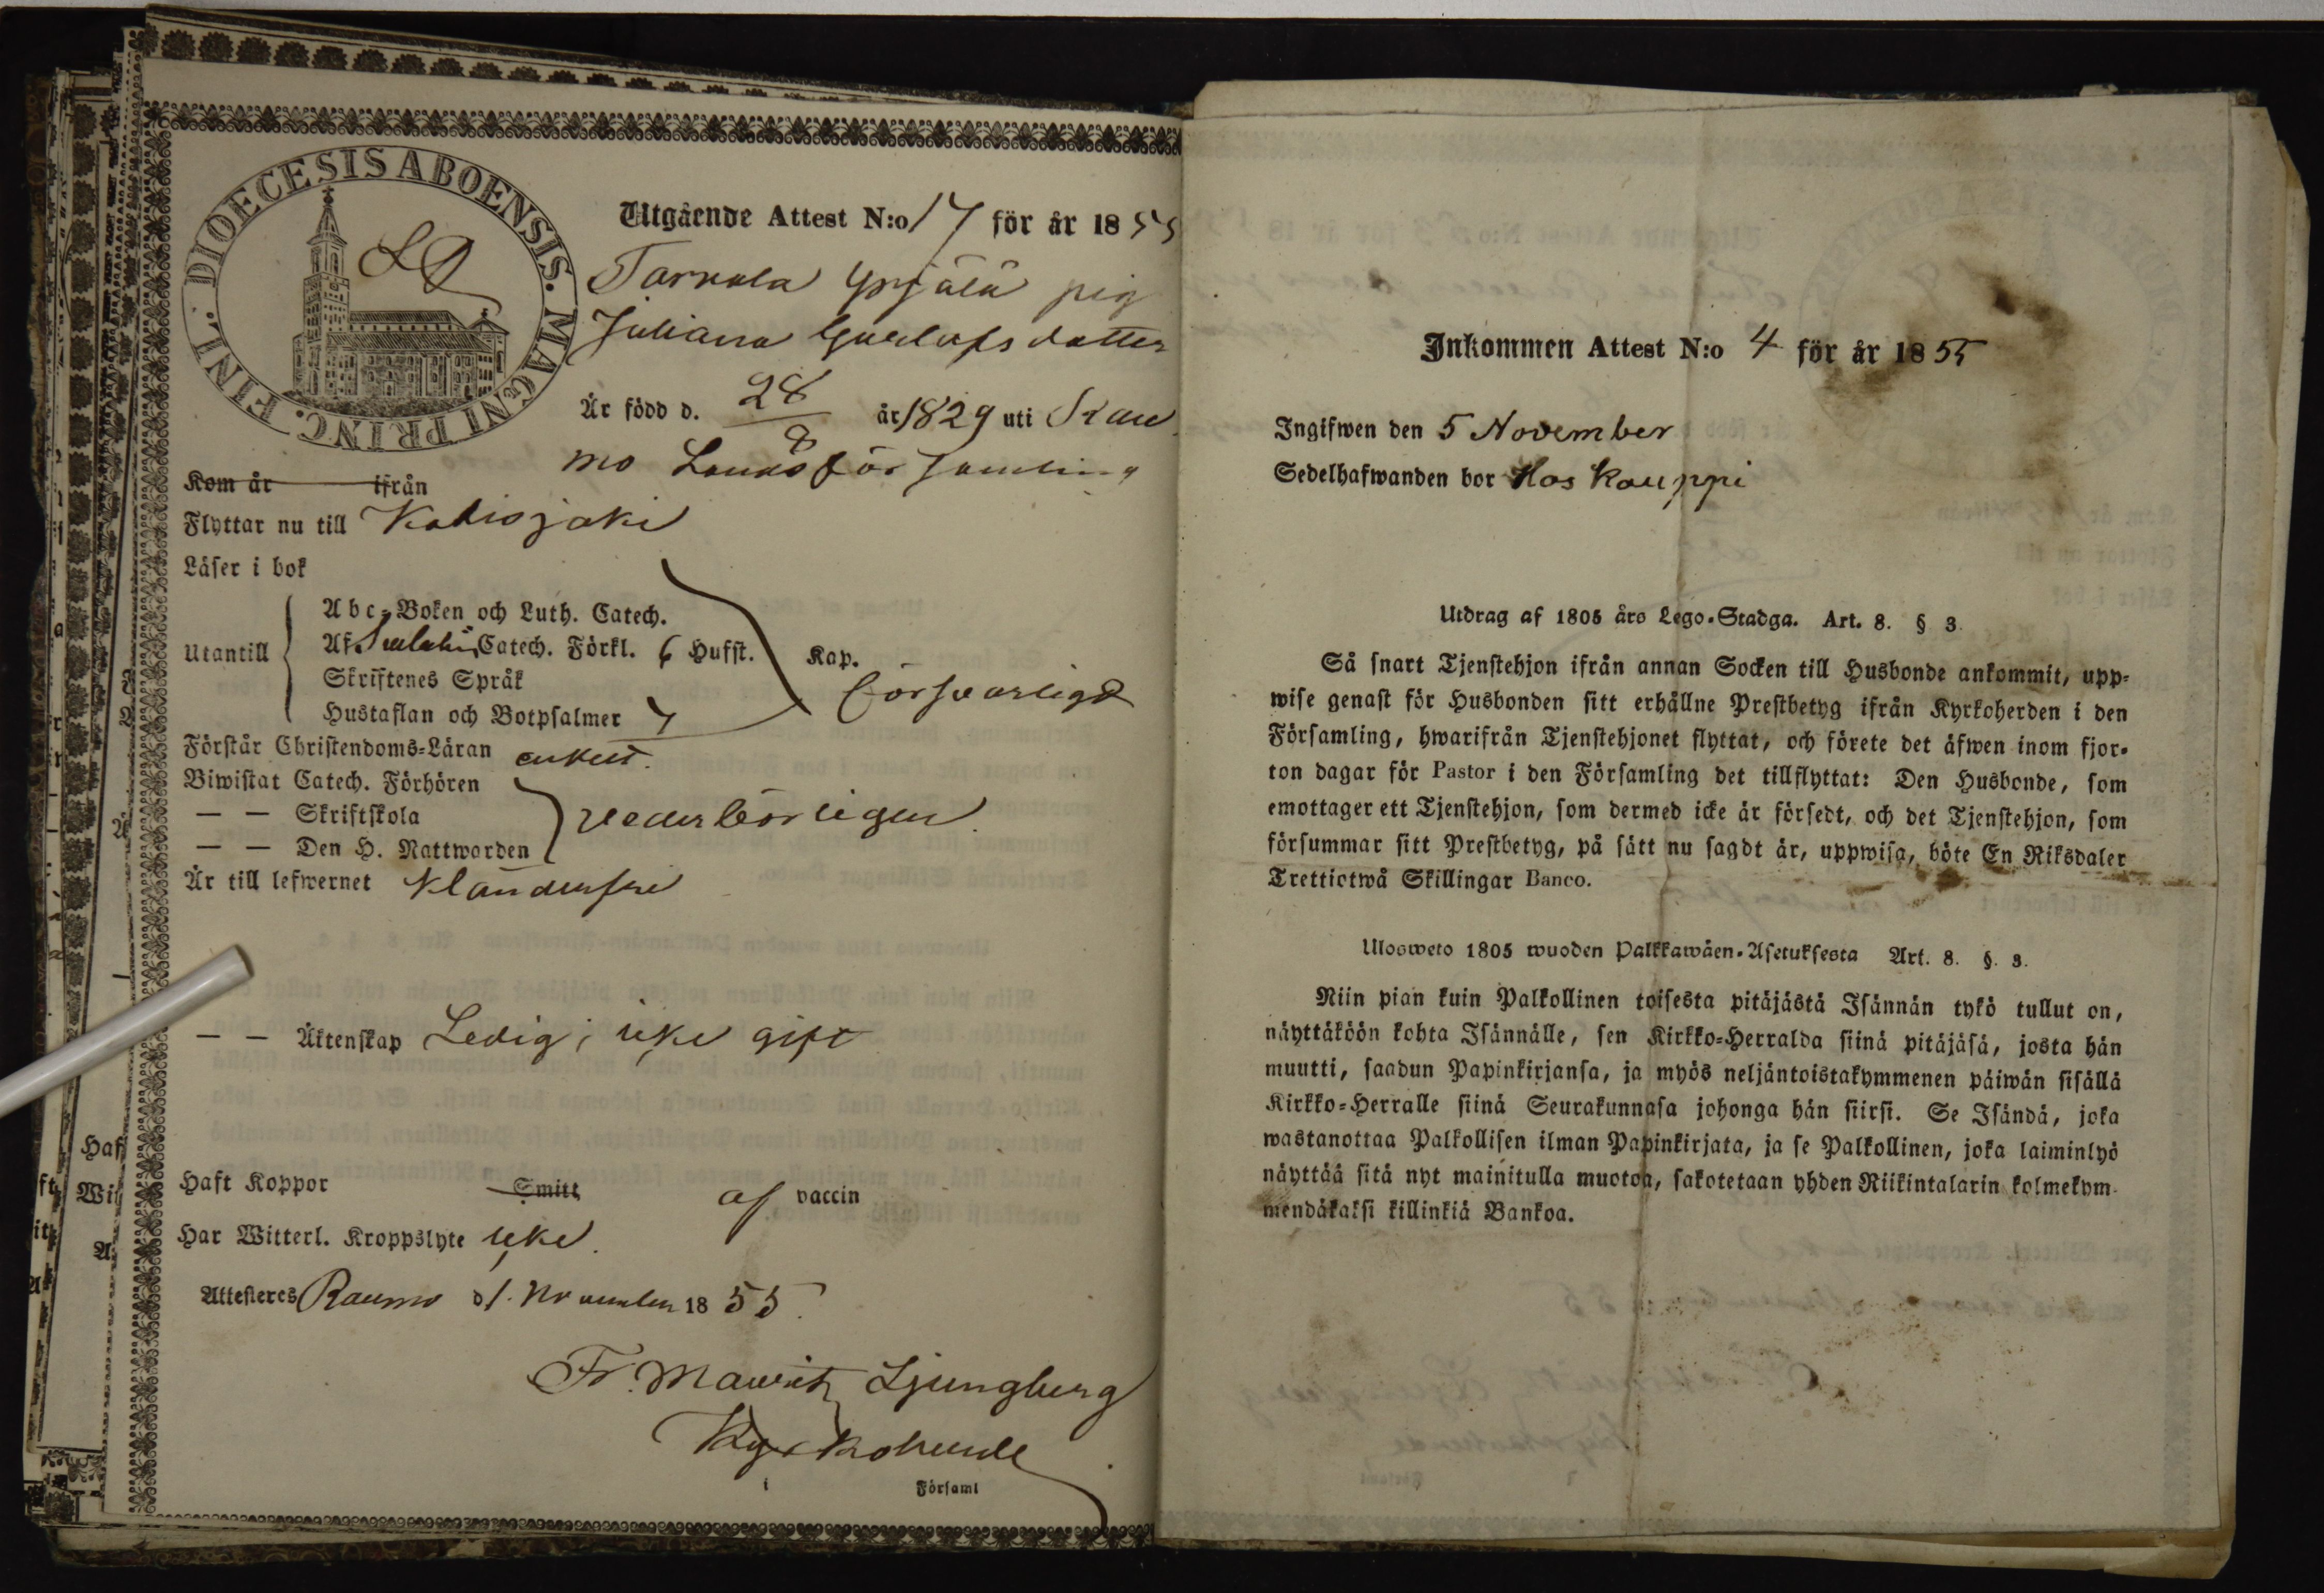 DIOECESIS ABOENSIS. MAGNI PRINC. FINL.
Utgående Attest N:o 17 för år 1855
pig
Juliana Gustafsdotter
Är född d. 28/8 år 1829 uti Rau
mo Landsförsamling
Kom år ifrån
Flyttar nu till Kodisjoki
Läser i bok
Abc-Boken och Luth. Catech.
Utantill Af Catech. Förkl. 6 Hufst. Kap.
Skriftenes Språk försvarligt
Hustaflan och Botpsalmer 7
Förstår Christendoms-Läran enkelt.
Biwistat Catech. Förhören
— — Skriftskola vederbörligen.
— — Den H. Nattwarden
Är till lefwernet klanderfri
— — Äktenskap Ledig, icke gift
Haft Koppor Smitt af vaccin
Har Witterl. Kroppslyte icke.
Attesteres Raumo d 1. November 1855.
Fr. Mauritz Ljungberg
Kyrkoherde
i Församl
Inkommen Attest N:o 4 för år 1855
Ingifwen den 5 November
Sedelhafwanden bor Hos Kauppi
Utdrag af 1805 års Lego-Stadga. Art. 8. § 3.
Så snart Tjenstehjon ifrån annan Socken till Husbonde ankommit, upp-
wise genast för Husbonden sitt erhållne Prestbetyg ifrån Kyrkoherden i den
Församling, hwarifrån Tjenstehjonet flyttat, och förete det äfwen inom fjor-
ton dagar för Pastor i den Församling det tillflyttat: Den Husbonde, som
emottager ett Tjenstehjon, som dermed icke är försedt, och det Tjenstehjon, som
försummar sitt Prestbetyg, på sätt nu sagdt är, uppwisa, böte En Riksdaler
Trettiotwå Skillingar Banco.
Ulosweto 1805 wuoden Palkkawäen-Asetuksesta Art. 8. §. 3.
Niin pian kuin Palkollinen toisesta pitäjästä Isännän tykö tullut on,
näyttäköön kohta Isännälle, sen Kirkko-Herralda siinä pitäjäsä, josta hän
muutti, saadun Papinkirjansa, ja myös neljäntoistakymmenen päiwän sisällä
Kirkko-Herralle siinä Seurakunnasa johonga hän siirsi. Se Isändä, joka
wastanottaa Palkollisen ilman Papinkirjata, ja se Palkollinen, joka laiminlyö
näyttää sitä nyt mainitulla muotoa, sakotetaan yhden Riikintalarin kolmekym-
mendäkaksi killinkiä Bankoa.